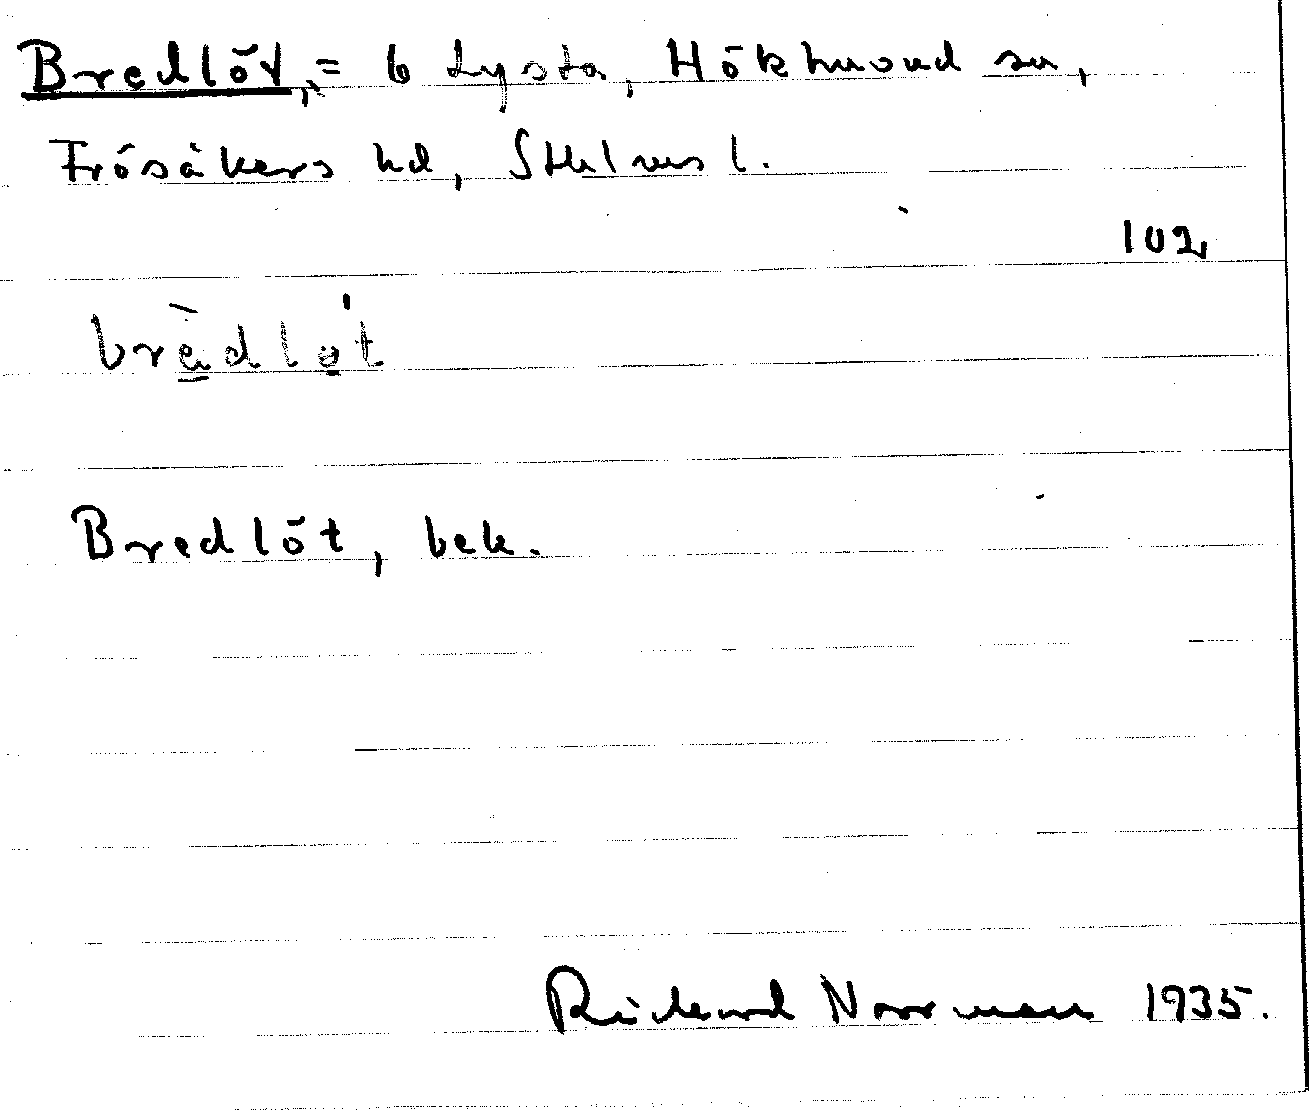 Bredlöt, = 6 Lysta, Hökhuvud sn,
Frösåkers hd, Sthlms l.
102
brèdlöt
Bredlöt, bek.
Rickard Norrman 1935.